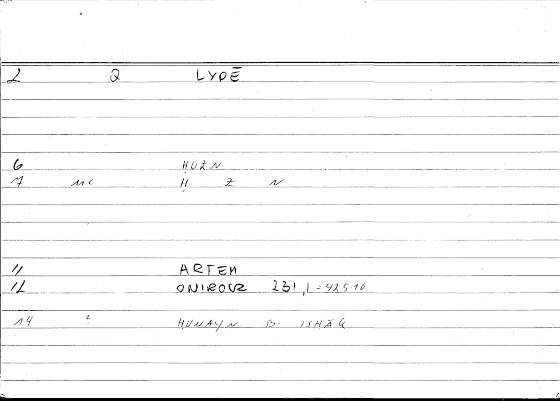 2 Q LYPĒ
6 ḤUZN
7 MC Ḥ Z N
11 ARTEM
12 ONIROCR 231,1 = 425.10
14 ? HUNAYN B. ISHĀQ